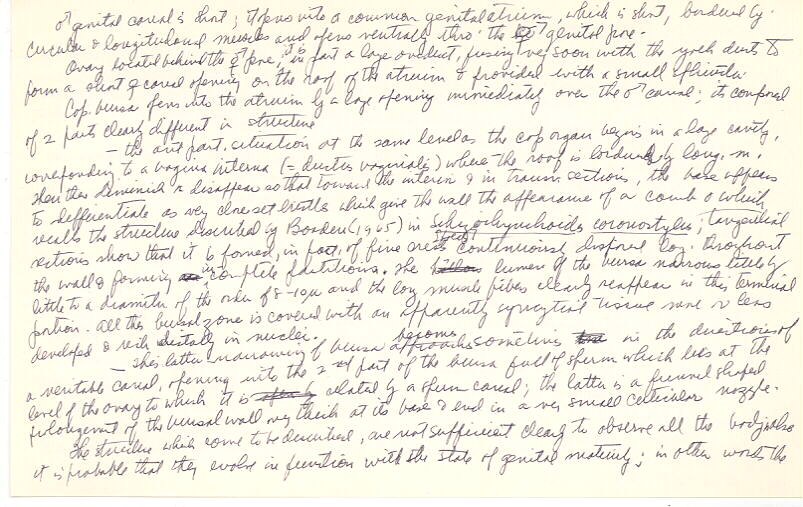 ♂ genital canal is short; it opens into a common genital atrium, which is short, bordered by
circular & longitudinal muscles and opens ventrally thro' the genital pore.
Ovary located behind the ♂ pore; it is in part a large oviduct, fusing very soon with the yolk duct to
form a short ♀ canal opening on the roof of the atrium & provided with a small sphincter.
Cop. bursa opens into the atrium by a large opening immediately over the ♂ canal; its composed
of 2 parts clearly different in structure
— the ant. part, situation at the same level as the cop organ begins in a large cavity,
corresponding to a vagina interna (= ductus vaginalis) where the roof is bordered by long. m.
then they diminish & disappear so that toward the interior & in transv. sections, the base appears
to differentiate as very close set bristles which give the wall the appearance of a comb & which
recalls the structure described by Borden (1965) in Schizorhynchoides coronostylus; tangential
sections show that it is formed, in fact, of fine striae continuously disposed long. throughout
the wall & forming in complete partitions. The lumen of the bursa narrows little by
little to a diameter of the order of 8-10µ and the long muscle fibers clearly reappear in this terminal
portion. All this bursal zone is covered with an apparently syncytial tissue more or less
developed & rich distally in nuclei.
— This latter narrowing of bursa becomes sometimes in the direction of
a veritable canal, opening into the 2nd part of the bursa full of sperm which lies at the
level of the ovary to which it is related by a sperm canal; the latter is a funnel shaped
prolongement of the bursal wall very thick at its base & end in a very small cuticular nozzle.
The structure which come to be described, are not sufficient clearly to observe all the body; also
it is probable that they evolve in function with the state of genital maturity; in other words the